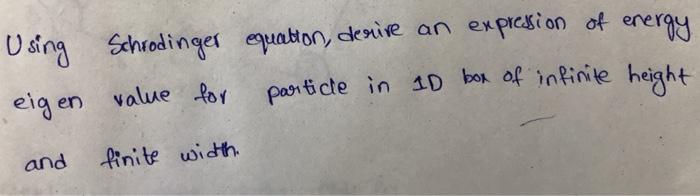 Using Schrodinger equation, derive an expression of energy
eigen value for particle in 1D box of infinite height
and finite width.